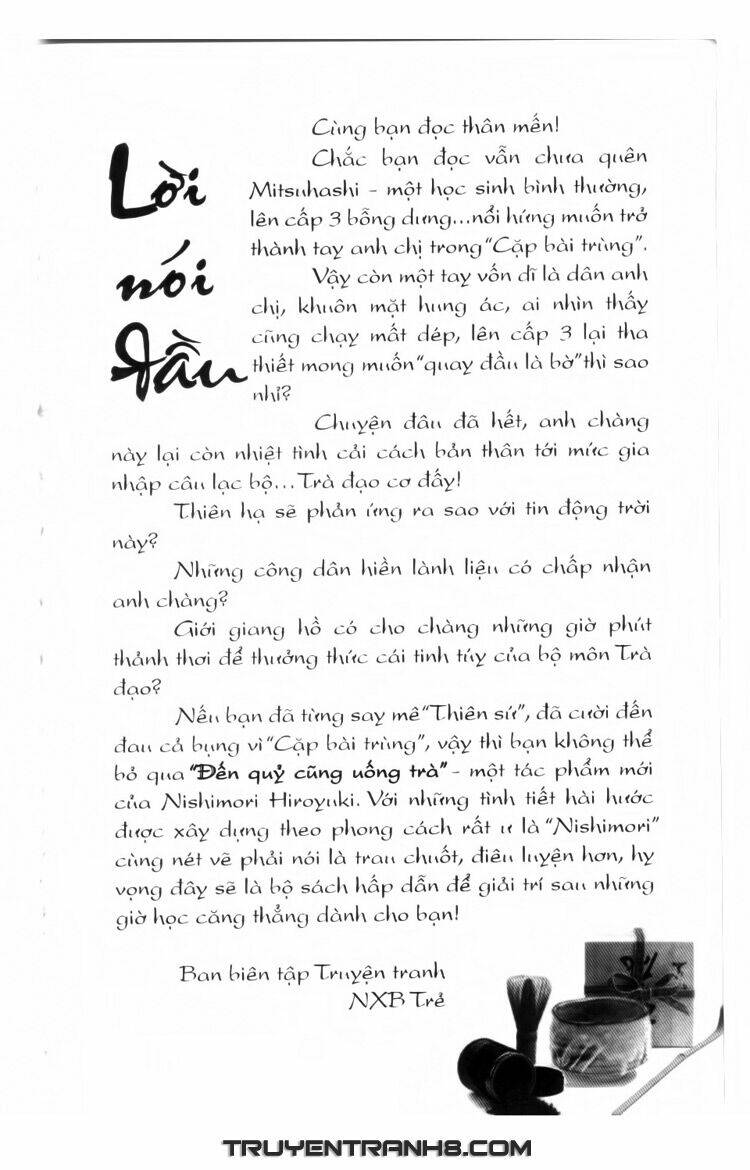 Lời
nói
đầu
Cùng bạn đọc thân mến!
Chắc bạn đọc vẫn chưa quên
Mitsuhashi - một học sinh bình thường,
lên cấp 3 bỗng dưng...nổi hứng muốn trở
thành tay anh chị trong "Cặp bài trùng".
Vậy còn một tay vốn dĩ là dân anh
chị, khuôn mặt hung ác, ai nhìn thấy
cũng chạy mất dép, lên cấp 3 lại tha
thiết mong muốn "quay đầu là bờ" thì sao
nhỉ?
Chuyện đâu đã hết, anh chàng
này lại còn nhiệt tình cải cách bản thân tới mức gia
nhập câu lạc bộ...Trà đạo cơ đấy!
Thiên hạ sẽ phản ứng ra sao với tin động trời
này?
Những công dân hiền lành liệu có chấp nhận
anh chàng?
Giới giang hồ có cho chàng những giờ phút
thảnh thơi để thưởng thức cái tinh túy của bộ môn Trà
đạo?
Nếu bạn đã từng say mê "Thiên sứ", đã cười đến
đau cả bụng vì "Cặp bài trùng", vậy thì bạn không thể
bỏ qua "Đến quỷ cũng uống trà" - một tác phẩm mới
của Nishimori Hiroyuki. Với những tình tiết hài hước
được xây dựng theo phong cách rất ư là "Nishimori"
cùng nét vẽ phải nói là trau chuốt, điêu luyện hơn, hy
vọng đây sẽ là bộ sách hấp dẫn để giải trí sau những
giờ học căng thẳng dành cho bạn!
Ban biên tập Truyện tranh
NXB Trẻ
TRUYENTRANH8.COM